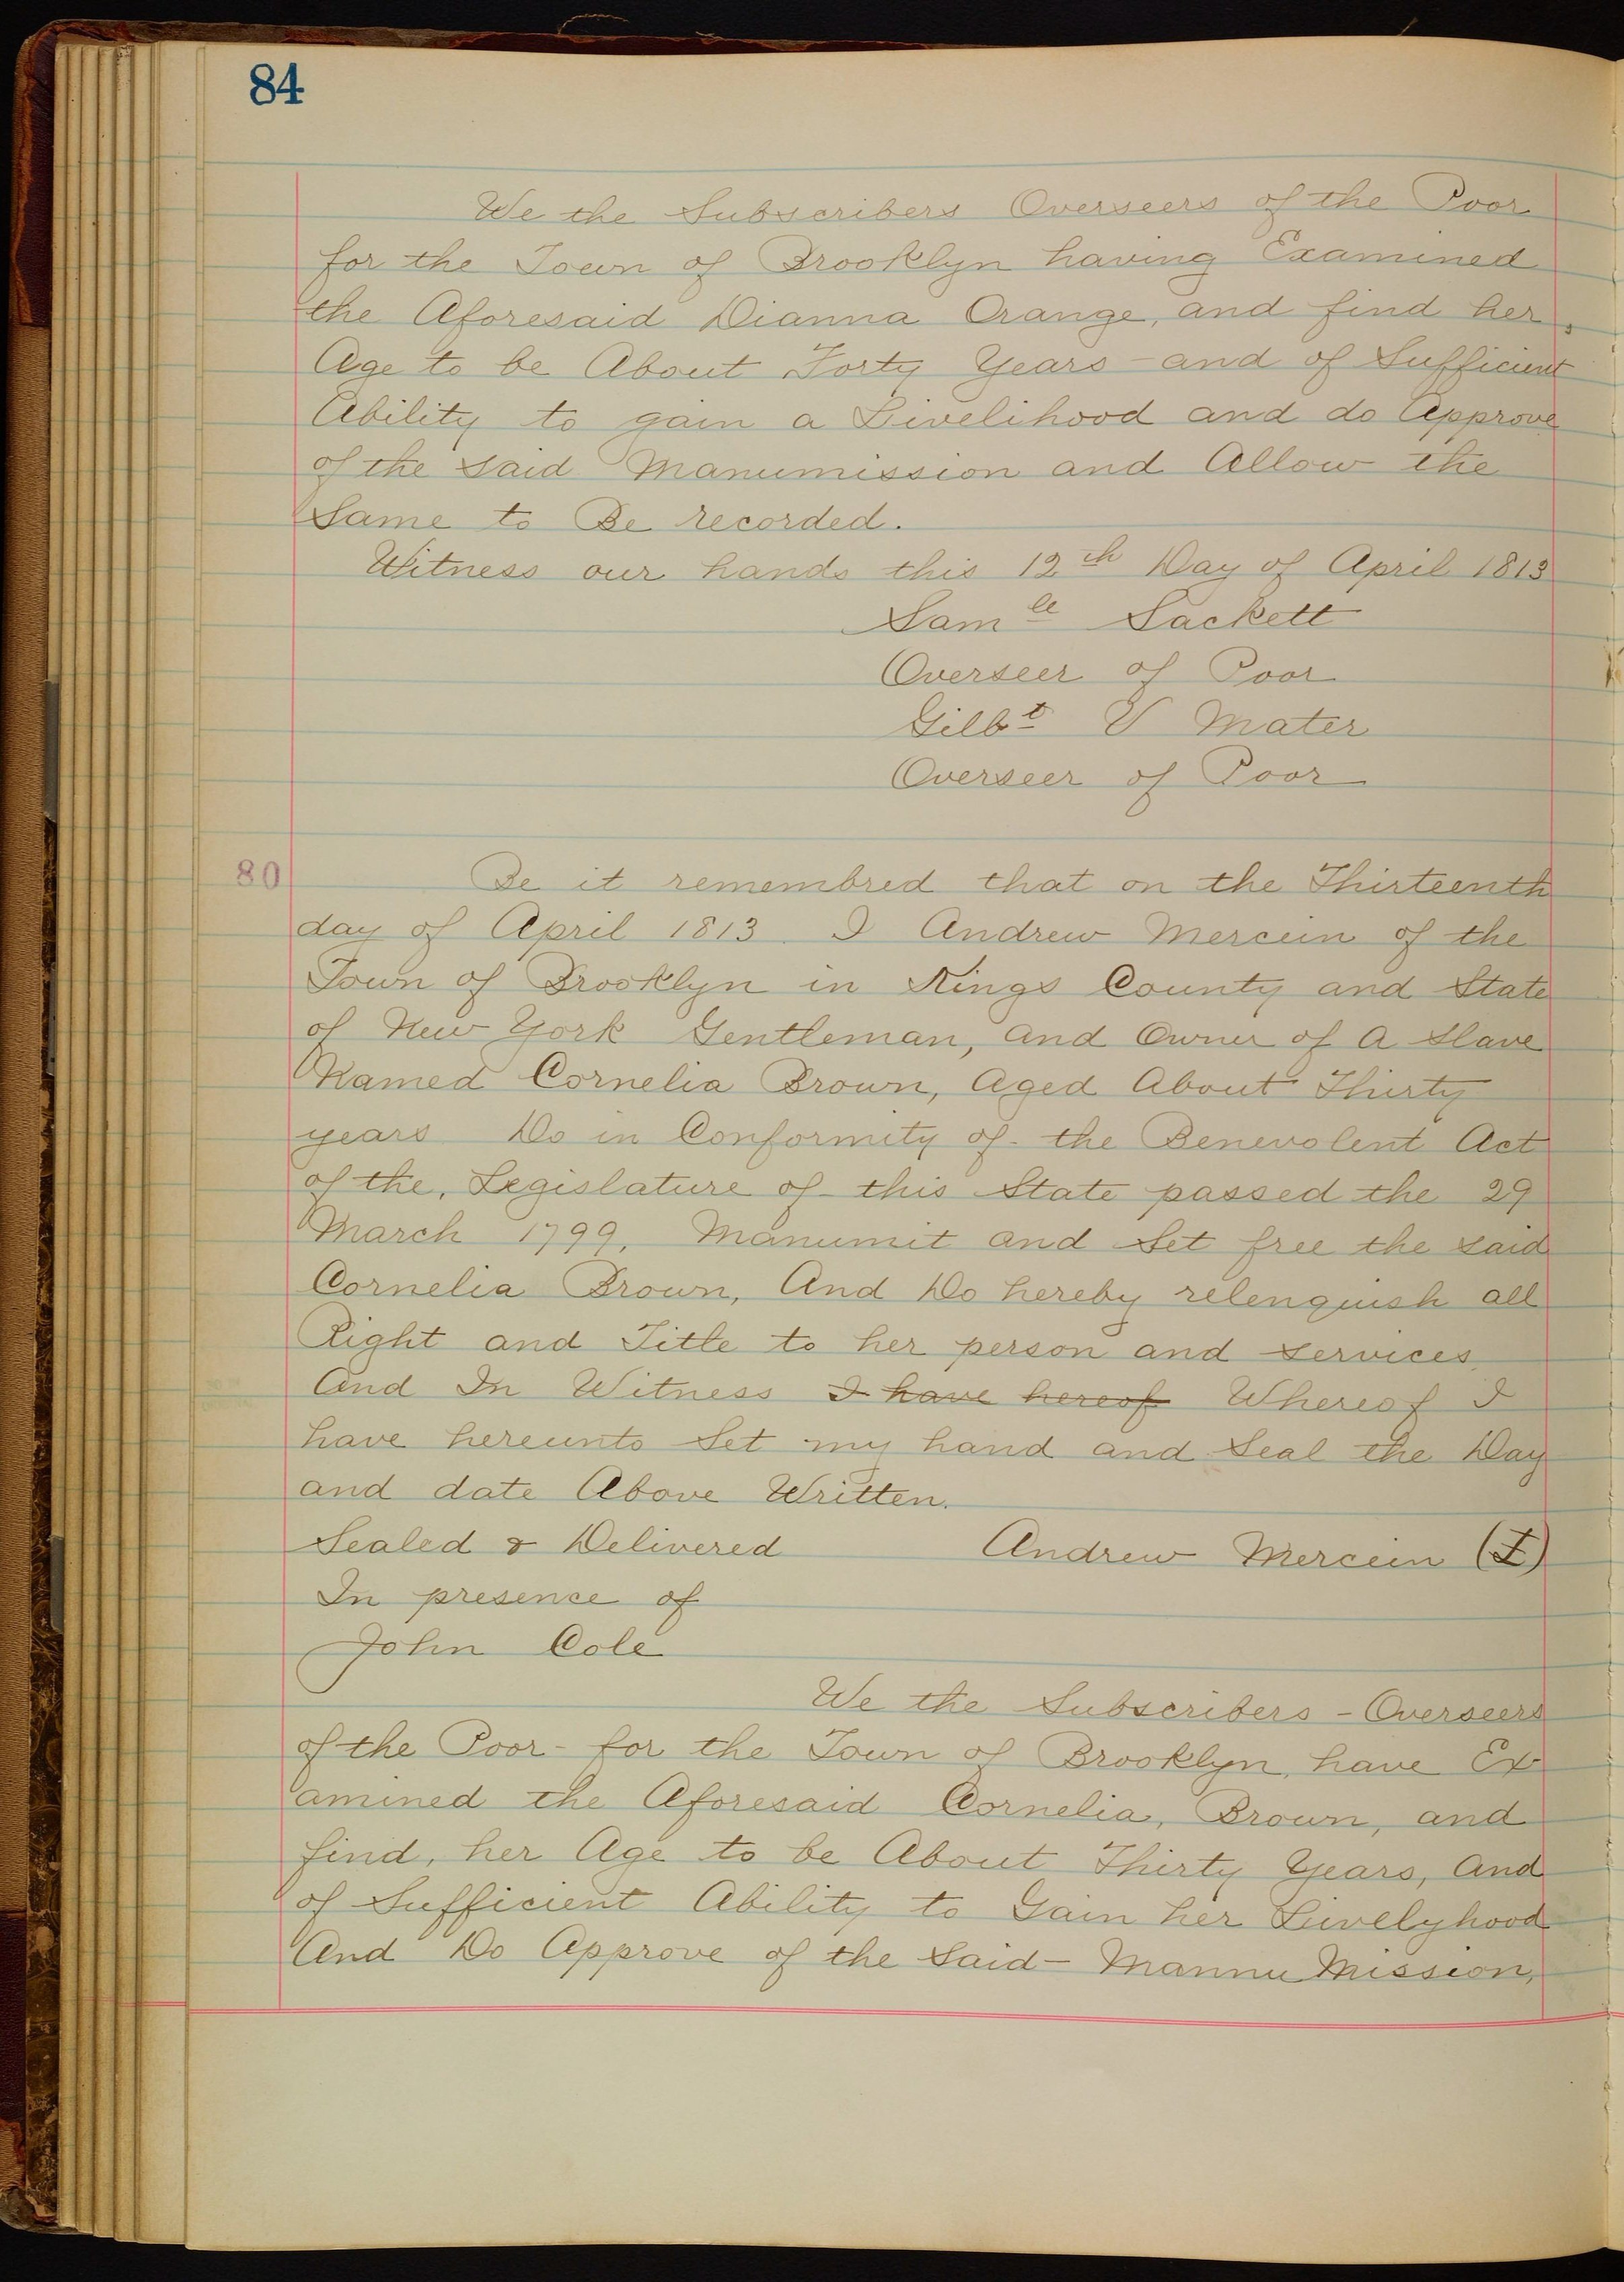 84
We the Subscribers Overseers of the Poor
for the Town of Brooklyn having Examined
the Aforesaid Dianna Orange, and find her,
Age to be About Forty Years - and of Sufficient
Ability to gain a Livelihood and do Approve
of the Said Manumission and Allow the
Same to Be recorded.
Witness our hands this 12th Day of April 1813
Samle Sackett
Overseer of Poor
Gilbt V Mater
Overseer of Poor
80
Be it remembred that on the Thirteenth
day of April 1813 I Andrew Mercein of the
Town of Brooklyn in Kings County and State
of New York Gentleman, and Owner of A Slave
Named Cornelia Brown, Aged About Thirty
years Do in Conformity of the Benevolent Act
of the, Legislature of this State passed the 29
March 1799, Manumit and Set free the said
Cornelia Brown, And Do hereby relenquish all
Right and Title to her person and services
And In Witness I have hereof Whereof I
have hereunto Set my hand and Seal the Day
and date Above Written.
Sealed & Delivered Andrew Mercein (L)
In presence of
John Cole
We the Subscribers - Overseers
of the Poor - for the Town of Brooklyn, have Ex
amined the Aforesaid Cornelia, Brown, and
find, her Age to be About Thirty Years, And
of Sufficient Ability to Gain her Livelyhood
And Do Approve of the Said - Mannu Mission,